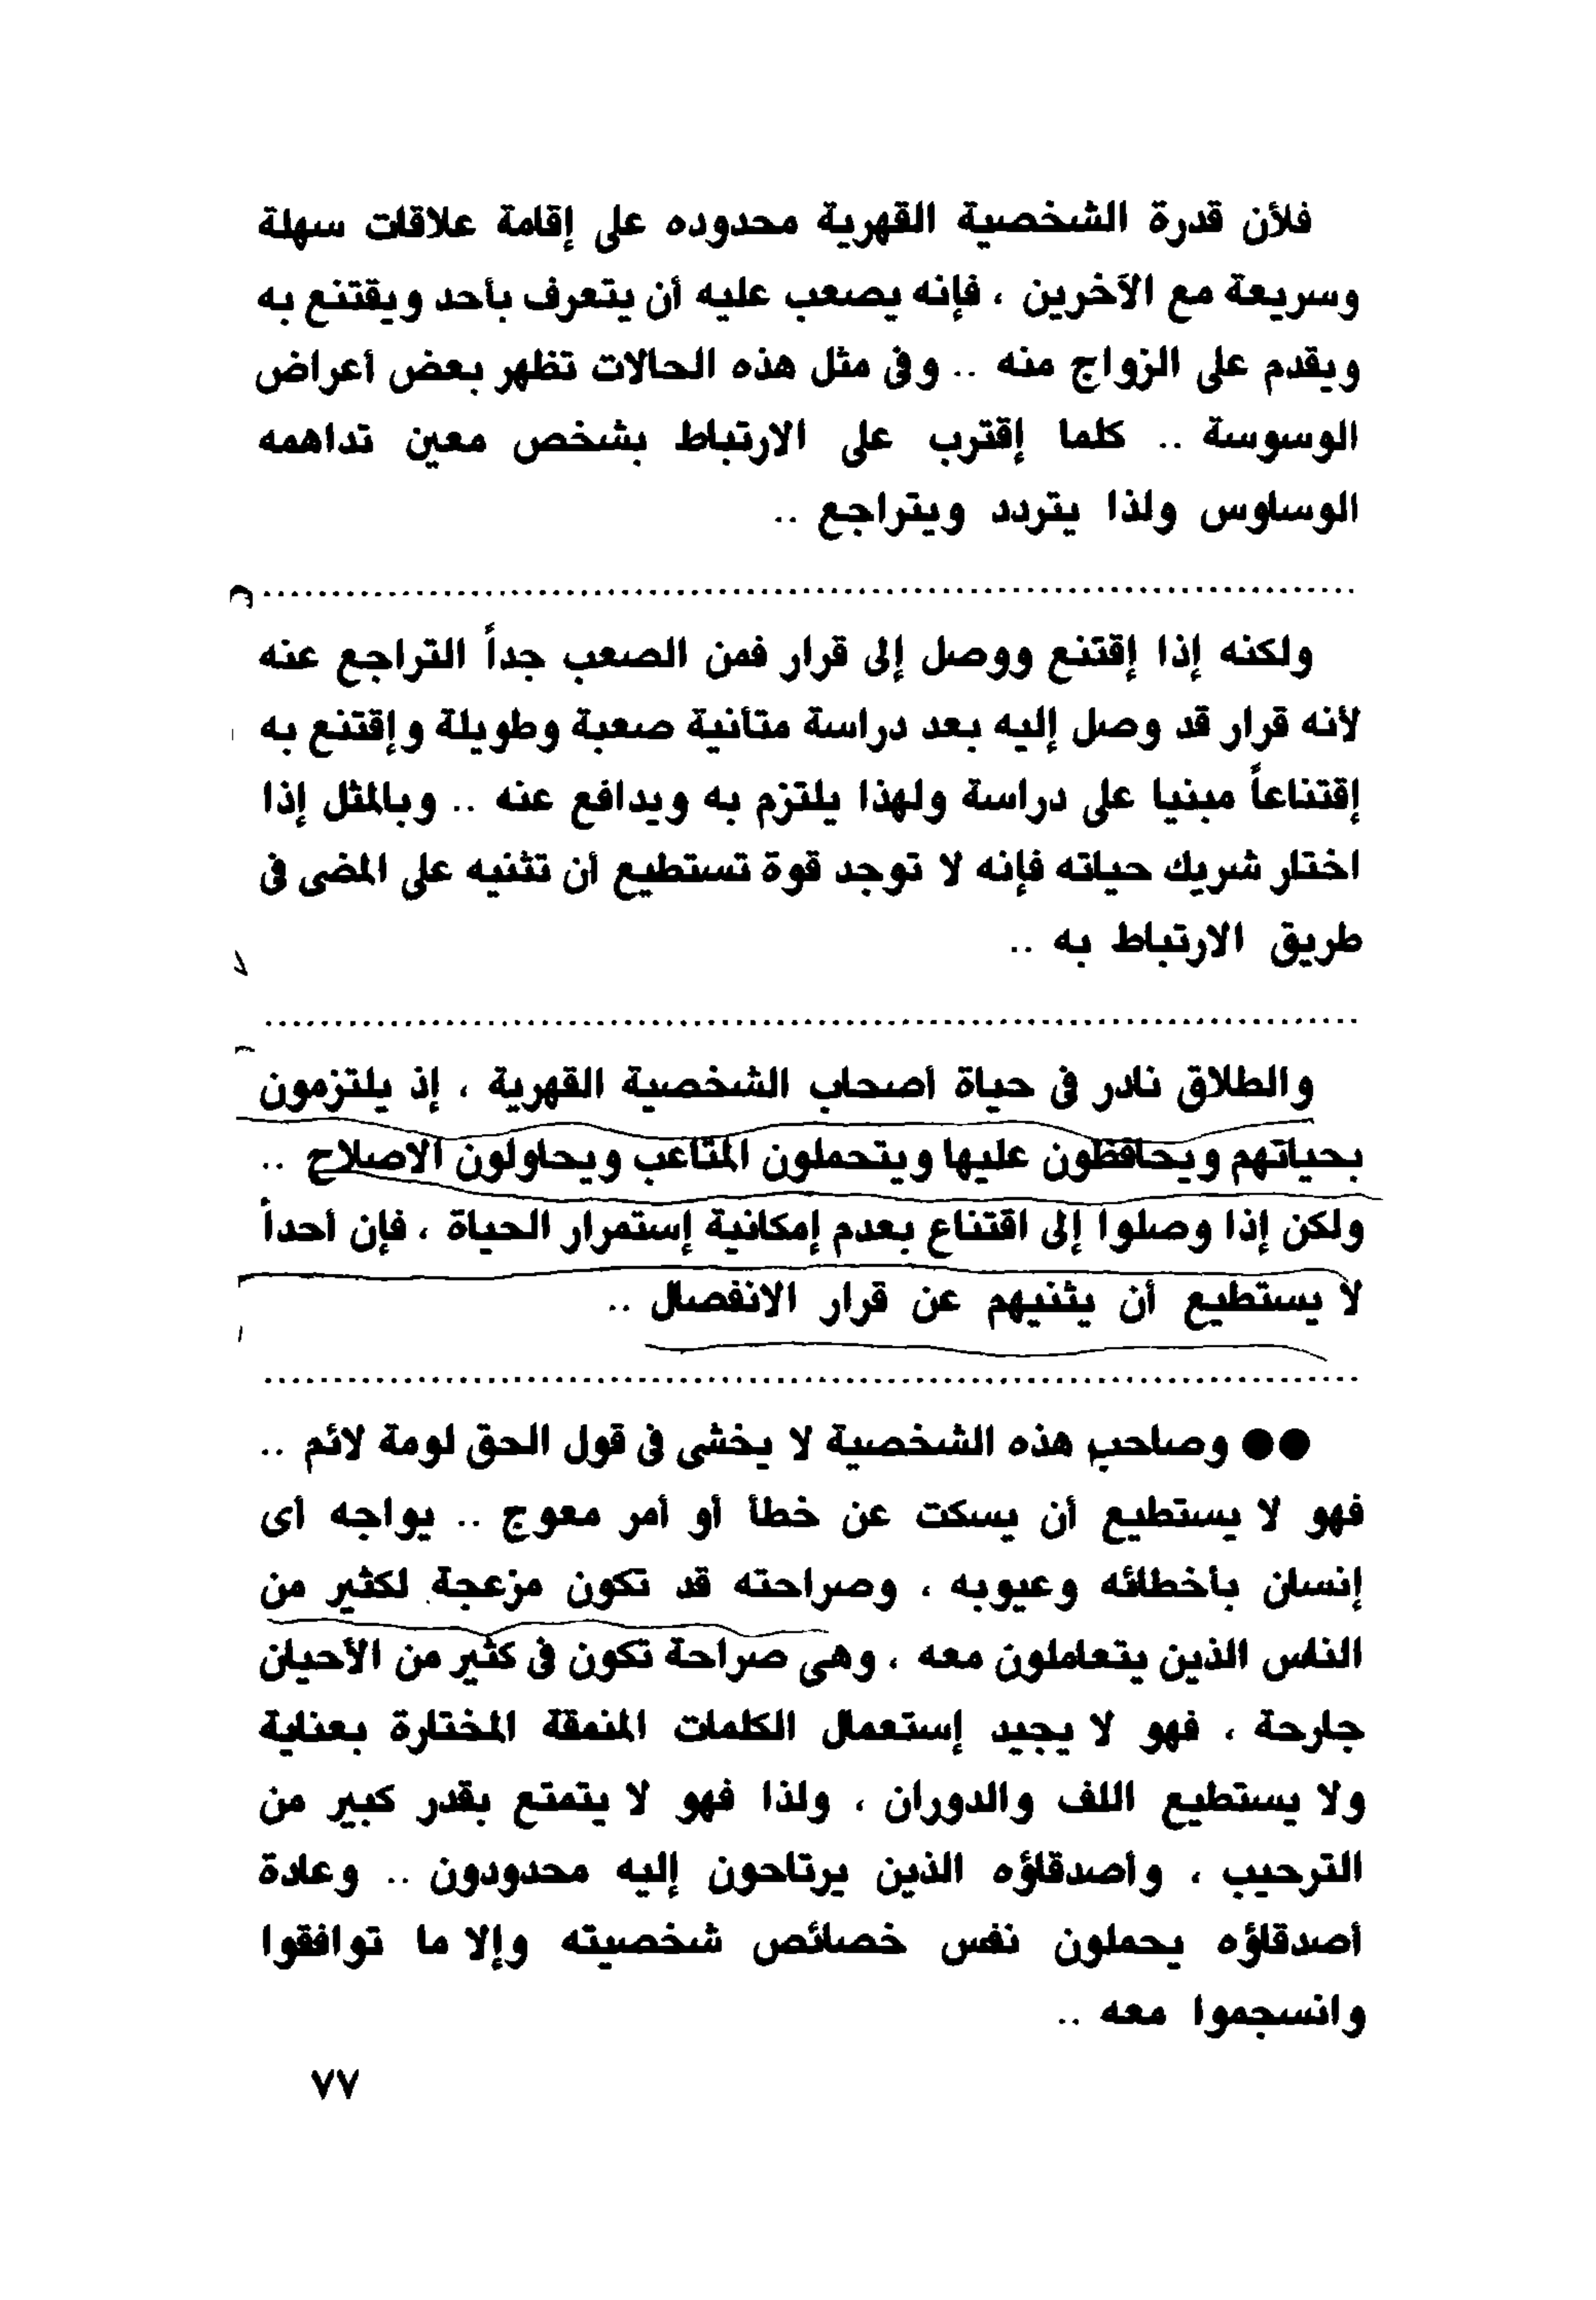 فلأن قدرة الشخصية القهرية محدوده على إقامة علاقات سهلة
وسريعة مع الآخرين ، فإنه يصعب عليه أن يتعرف بأحد ويقتنع به
ويقدم على الزواج منه .. وفى مثل هذه الحالات تظهر بعض أعراض
الوسوسة .. كلما إقترب على الارتباط بشخص معين تداهمه
الوساوس ولذا يتردد ويتراجع ..
ولكنه إذا إقتنع ووصل إلى قرار فمن الصعب جداً التراجع عنه
لأنه قرار قد وصل إليه بعد دراسة متأنية صعبة وطويلة وإقتنع به
إقتناعاً مبنيا على دراسة ولهذا يلتزم به ويدافع عنه .. وبالمثل إذا
اختار شريك حياته فإنه لا توجد قوة تستطيع أن تثنيه على المضى فى
طريق الارتباط به ..
والطلاق نادر فى حياة أصحاب الشخصية القهرية ، إذ يلتزمون
بحياتهم ويحافظون عليها ويتحملون المتاعب ويحاولون الاصلاح ..
ولكن إذا وصلوا إلى اقتناع بعدم إمكانية إستمرار الحياة ، فإن أحداً
لا يستطيع أن يثنيهم عن قرار الانفصال ..
●● وصاحب هذه الشخصية لا يخشى فى قول الحق لومة لائم ..
فهو لا يستطيع أن يسكت عن خطأ أو أمر معوج .. يواجه أى
إنسان بأخطائه وعيوبه ، وصراحته قد تكون مزعجة لكثير من
الناس الذين يتعاملون معه ، وهى صراحة تكون فى كثير من الأحيان
جارحة ، فهو لا يجيد إستعمال الكلمات المنمقة المختارة بعناية
ولا يستطيع اللف والدوران ، ولذا فهو لا يتمتع بقدر كبير من
الترحيب ، وأصدقاؤه الذين يرتاحون إليه محدودون .. وعادة
أصدقاؤه يحملون نفس خصائص شخصيته وإلا ما توافقوا
وانسجموا معه ..
٧٧